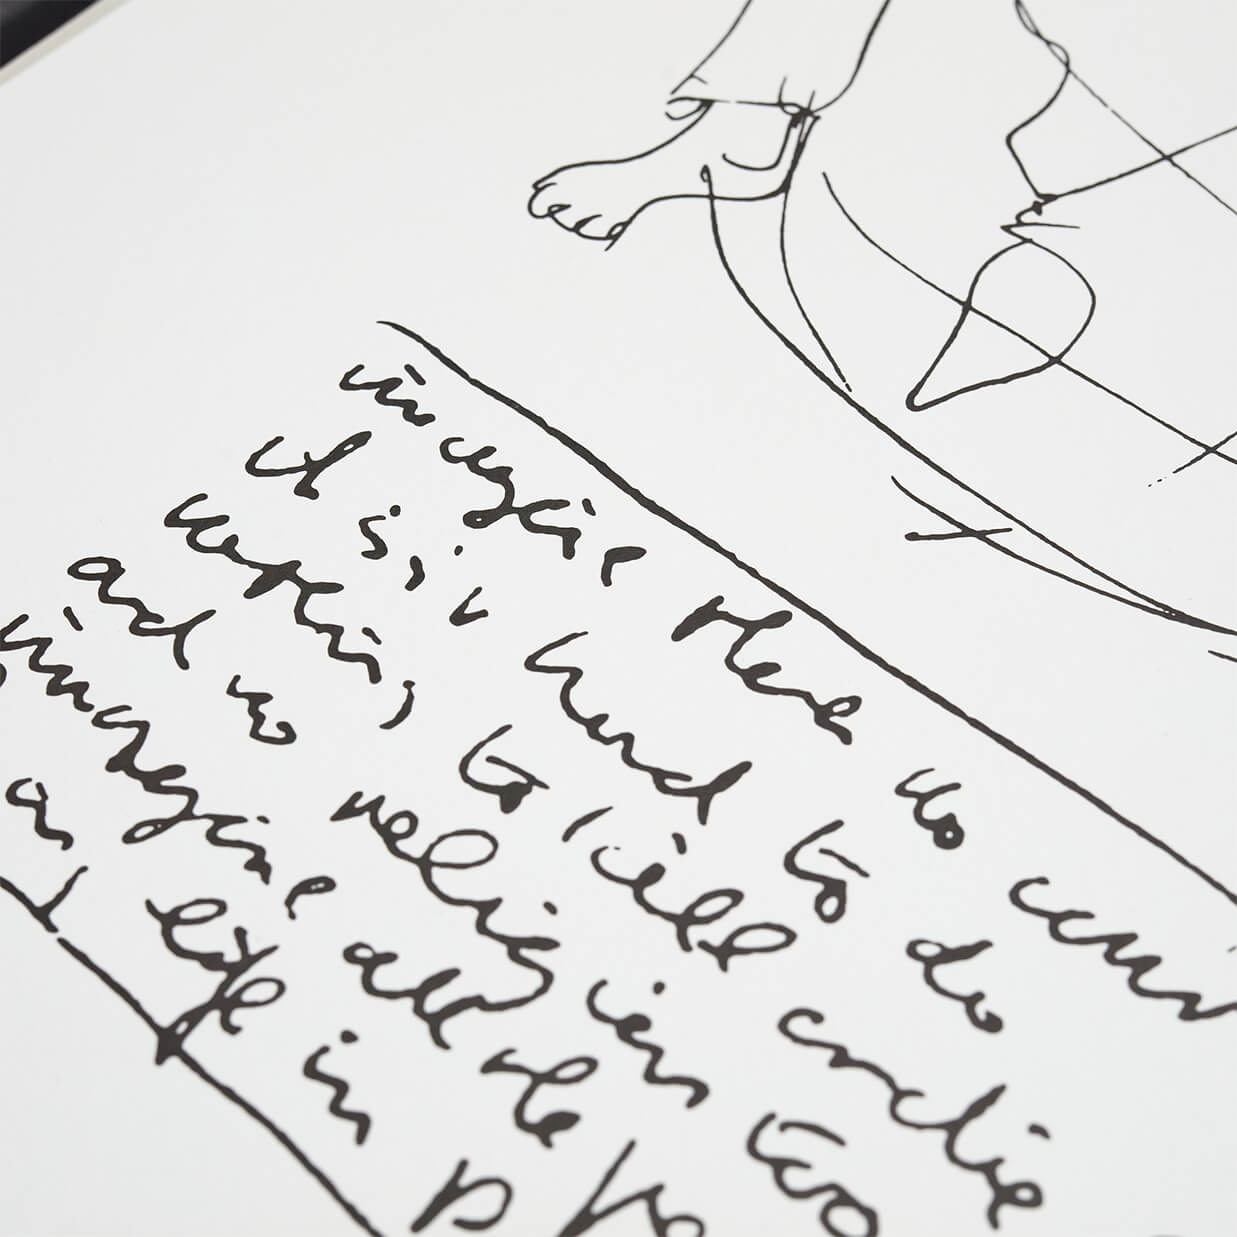 imagine there no coun
it isn't hard to do
nothing to kill or die
and no religion too
imagine all the pe
life in p